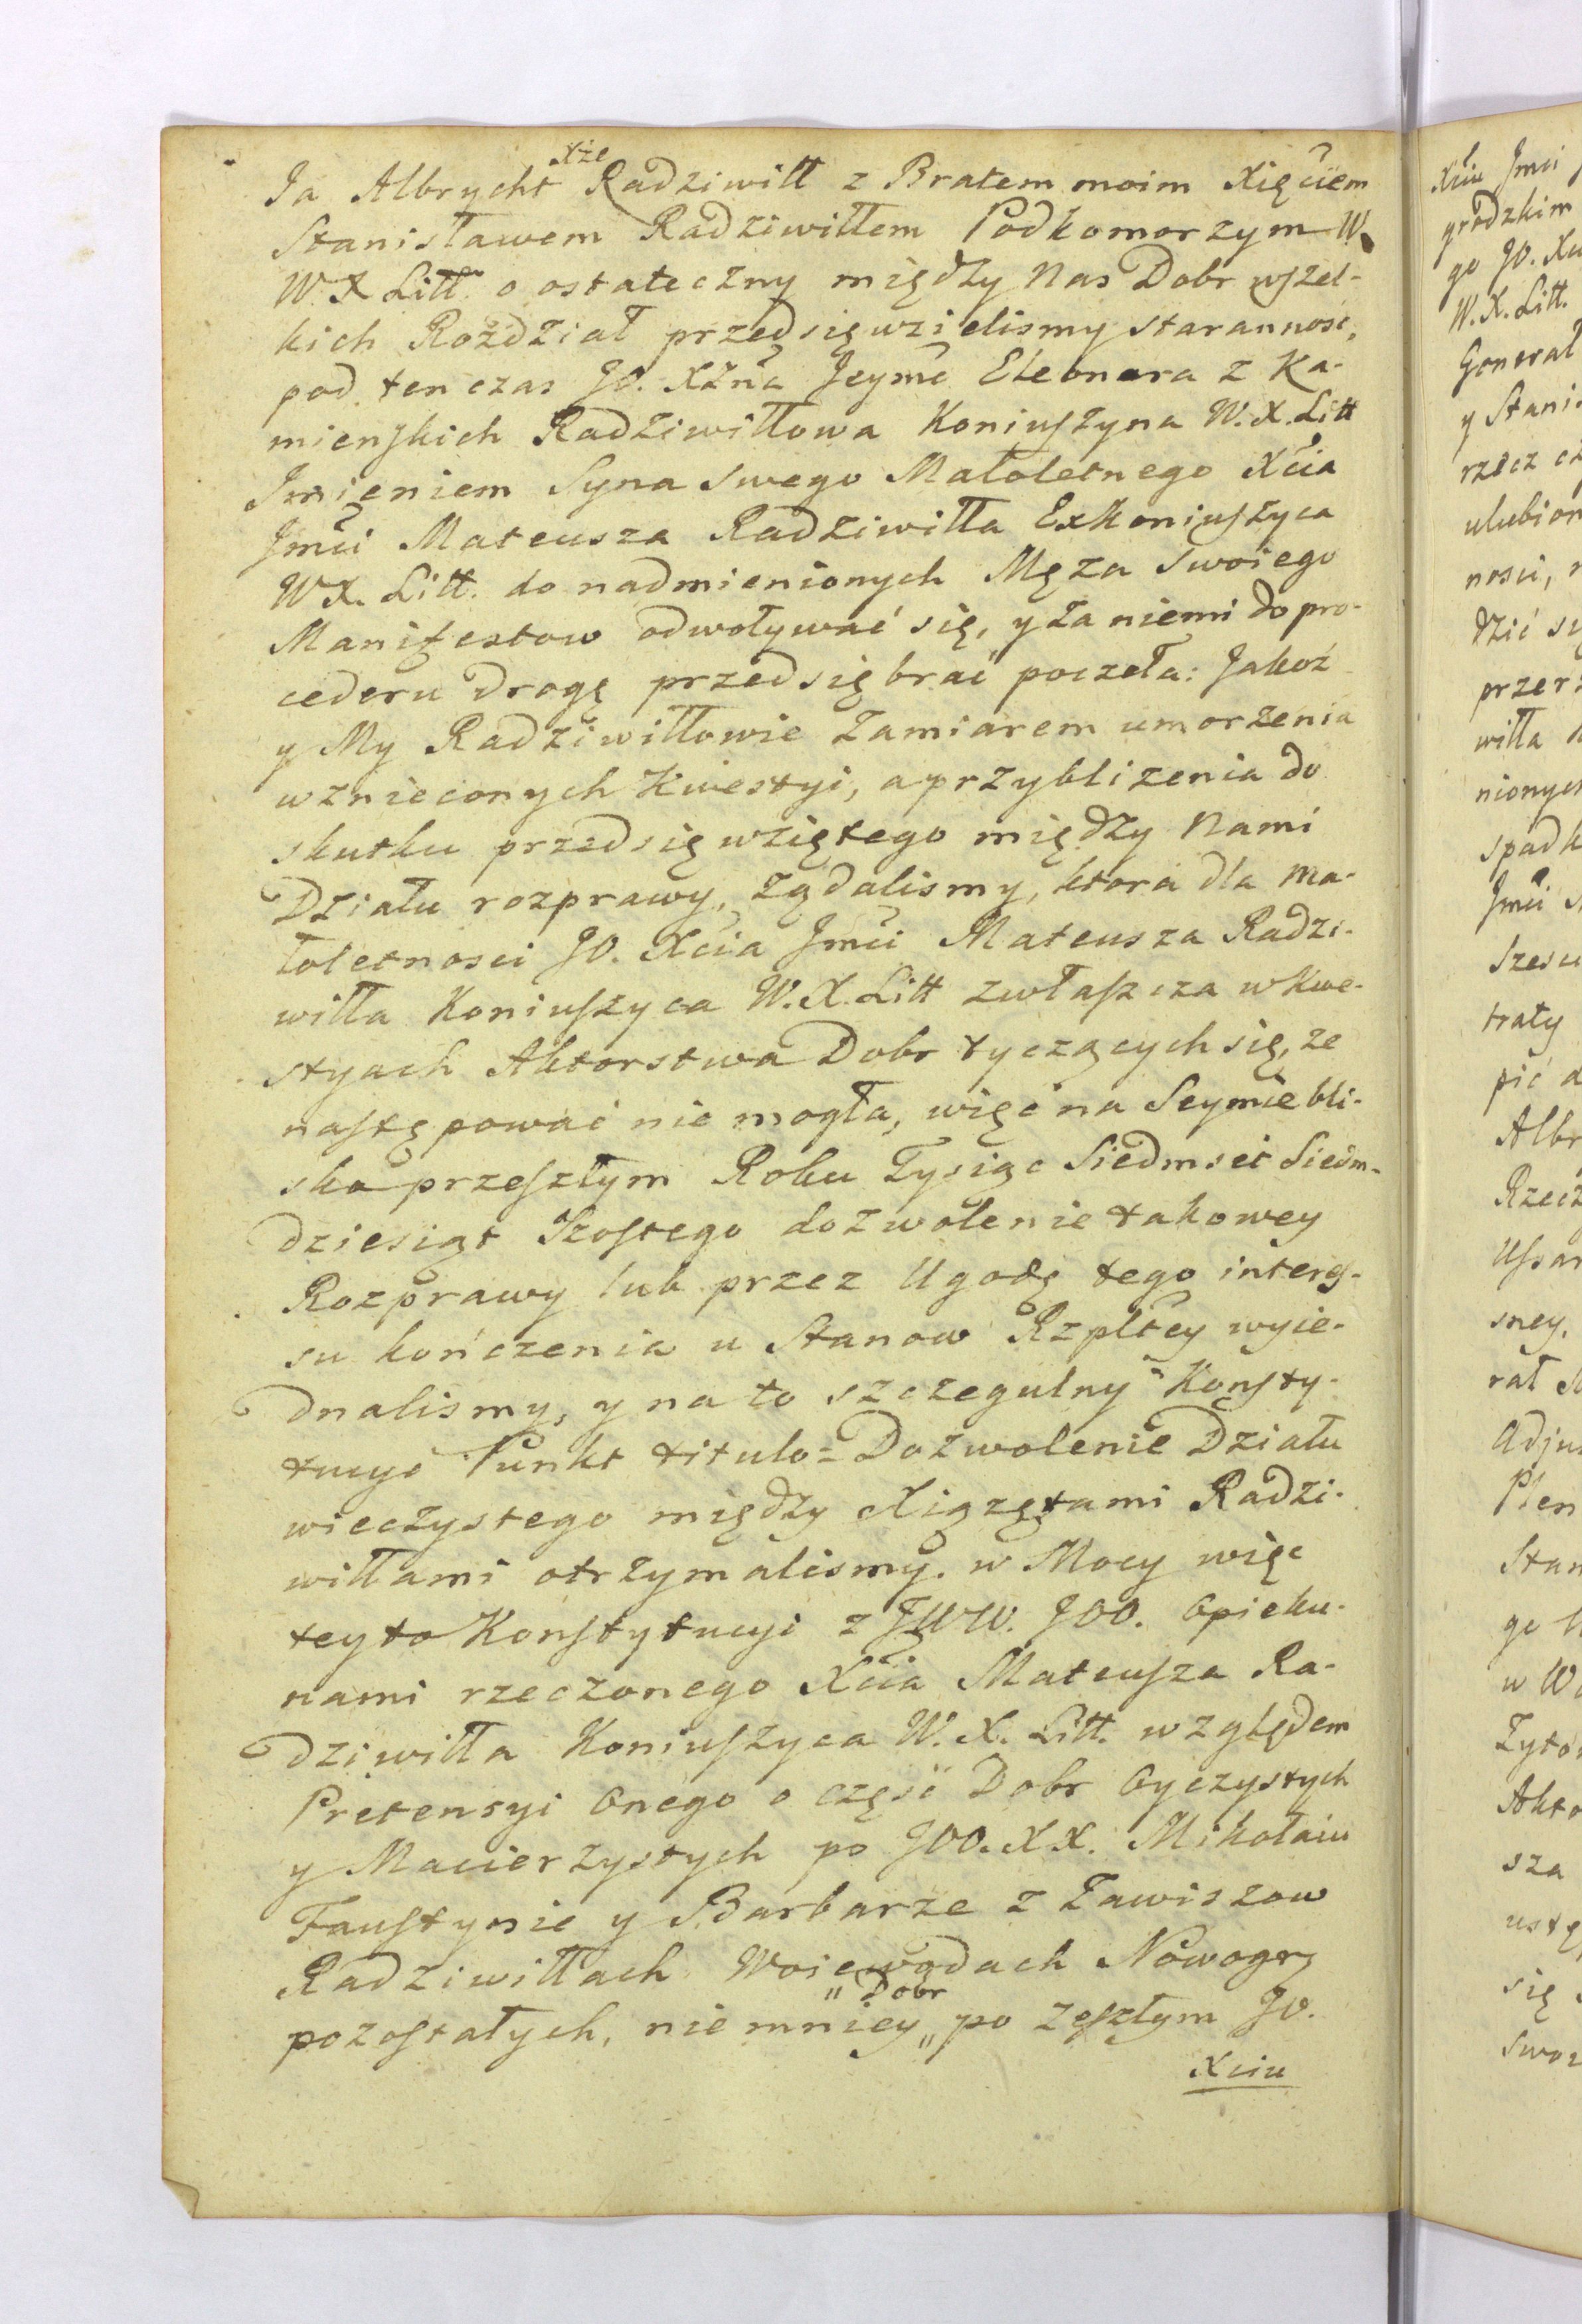 Xże
Ja Albrycht Radziwiłł z Bratem moim Xięciem
Stanisławem Radziwiłłem Podkomorzym W.
W.X Litt. o ostateczny między Nas Dobr wszel-
kich Rozdział przedsięwzielismy starannosć,
pod ten czas JO. XŻna Jeymć Eleonora z Ka-
mienskich Radziwiłłowa Koniuszyna W.X.Litt
Jmieniem Syna swego Małoletnego Xcia
Jmci Mateusza Radziwiłła Exkoniuszyca
WX. Litt. do nadmienionych Męza Swoiego
Manifestow odwoływać się, y za niemi do pro-
cederu drogę przedsiębrać poczeła: Jakoż
y My Radziwiłłowie zamiarem umorzenia
wznieconych Kwestyi, a przyblizenia do
skutku przedsięwziętego między Nami
Działu rozprawy, żądalismy, ktora dla Ma-
łoletnosci JO. Xcia Jmci Mateusza Radzi-
wiłła Koniuszyca W.X.Litt zwłaszcza w kwe-
styach Aktorstwa Dobr tyczących się, ze
następować nie mogła, więc na Seymie bli-
sko przeszłym Roku Tysiąc Siedmset Siedm-
dziesiąt Szostego dozwolenie takowey
Rozprawy lub przez Ugodę tego intere-
su kończenia u Stanow Rzpltey wyie-
dnalismy, y na to szczegulny Konsty-
tucyi Punkt titulo= Dozwolenie Działu
wieczystego między Xiązętami Radzi-
wiłłami otrzymalismy. w Mocy więc
teyto Konstytucyi z JWW. JOO. Opieku-
nami rzeczonego Xcia Mateusza Ra-
dziwiłła Koniuszyca W.X. Litt. względem
Pretensyi Onego o część Dobr Oyczystych
y Macierzystych po JOO.XX. Mikołaiu
Faustynie y Barbarze z Zawiszow
Radziwiłłach Woiewodach Nowogr
„ Dobr
pozostałych, niemniey „ po zeszłym JO.
Xciu
Xciu Jmci
grodzkim
go JO.
W.X.Litt.
Generał
y Stani
rzecz
ulubion
nosci,
dzić
przer
wiłła
nionych
spadk
Jmci
traty
pić
Albr
Rzecz
sney,
rał
Adju
Plen
Stan
go
w
Żyto
Akto
sza
ustę
się
Swo